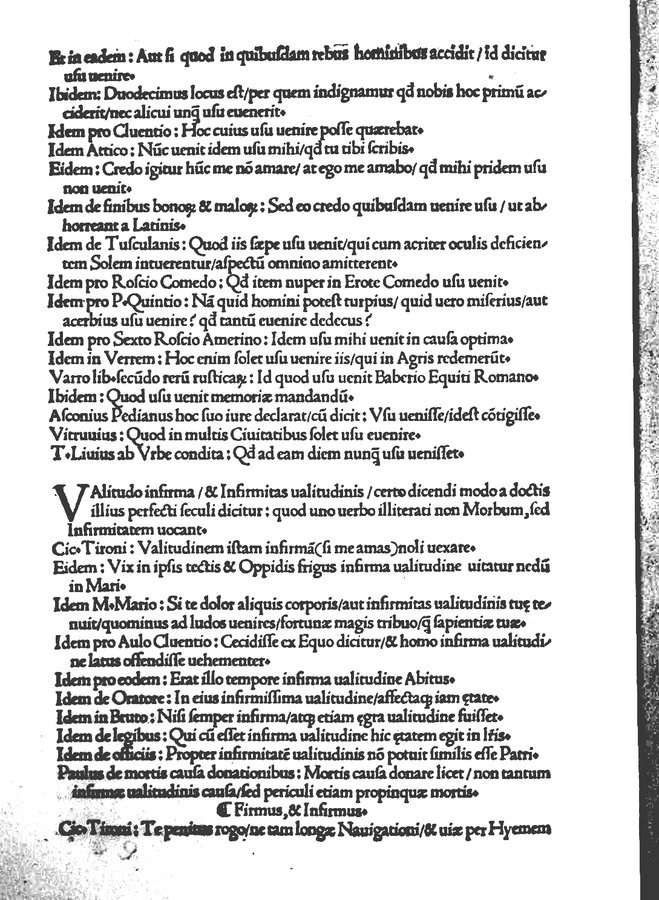 Et in eadem : Aut si quod in quibusdam rebus̄ hominibus accidit / id dicitur
usu uenire.
Ibidem: Duodecimus locus est/per quem indignamur qđ nobis hoc primū ac/
ciderit/nec alicui unq̄ usu euenerit.
Idem pro Cluentio : Hoc cuius usu uenire posse quærebat.
Idem Attico : Nūc uenit idem usu mihi/qđ tu tibi scribis.
Eidem : Credo igitur hūc me nō amare/ at ego me amabo/ qđ mihi pridem usu
non uenit.
Idem de finibus bonoꝝ & maloꝝ : Sed eo credo quibusdam uenire usu / ut ab/
horreant a Latinis.
Idem de Tusculanis : Quod iis sæpe usu uenit/qui cum acriter oculis deficien/
tem Solem intuerentur/aspectū omnino amitterent.
Idem pro Roscio Comedo : Qđ item nuper in Erote Comedo usu uenit.
Idem pro P.Quintio : Nā quid homini potest turpius/ quid uero miserius/aut
acerbius usu uenire ? qđ tantū euenire dedecus ?
Idem pro Sexto Roscio Amerino : Idem usu mihi uenit in causa optima.
Idem in Verrem : Hoc enim solet usu uenire iis/qui in Agris redemerūt.
Varro lib.secūdo rerū rusticaꝝ : Id quod usu uenit Baberio Equiti Romano.
Ibidem : Quod usu uenit memoriæ mandandū.
Asconius Pedianus hoc suo iure declarat/cū dicit : Vsu uenisse/idest cōtigisse.
Vitruuius : Quod in multis Ciuitatibus solet usu euenire.
T.Liuius ab Vrbe condita : Qđ ad eam diem nunq̄ usu uenisset.
VAlitudo infirma / & Infirmitas ualitudinis / certo dicendi modo a doctis
illius perfecti seculi dicitur : quod uno uerbo illiterati non Morbum,sed
Infirmitatem uocant.
Cic.Tironi : Valitudinem istam infirmā(si me amas)noli uexare.
Eidem : Vix in ipsis tectis & Oppidis frigus infirma ualitudine uitatur nedū
in Mari.
Idem M.Mario : Si te dolor aliquis corporis/aut infirmitas ualitudinis tuę te/
nuit/quominus ad ludos uenires/fortunæ magis tribuo/q̄ sapientiæ tuæ.
Idem pro Aulo Cluentio : Cecidisse ex Equo dicitur/& homo infirma ualitudi/
ne latus offendisse uehementer.
Idem pro eodem : Erat illo tempore infirma ualitudine Abitus.
Idem de Oratore : In eius infirmissima ualitudine/affectaqꝫ iam ętate.
Idem in Bruto : Nisi semper infirma/atqꝫ etiam ęgra ualitudine fuisset.
Idem de legibus : Qui cū esset infirma ualitudine hic ętatem egit in Iris.
Idem de officiis : Propter infirmitatē ualitudinis nō potuit similis esse Patri.
Paulus de mortis causa donationibus : Mortis causa donare licet / non tantum
infirmæ ualitudinis causa/sed periculi etiam propinquæ mortis.
¶ Firmus,& Infirmus.
Cic.Tironi : Te penitus rogo/ne tam longæ Nauigationi/& uiæ per Hyemem